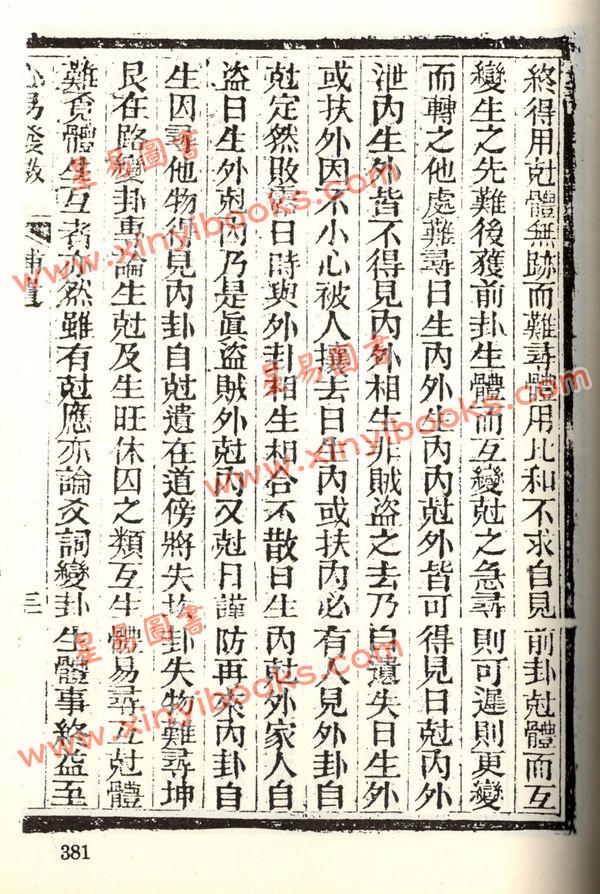 終得用尅體無跡而難尋體用比和不求自見前卦尅體而互
變生之先難後獲前卦生體而互變尅之急尋則可遲則更變
而轉之他處難尋日生內外生內內尅外皆可得見日尅內外
泄內生外皆不得見內外相生非賊盜之去乃自遺失日生外
或扶外因不小心被人攘去日生內或扶內必有人見外卦自
尅定然敗露日時與外卦相生相合不散日生內尅外家人自
盜日生外尅內乃是眞盜賊外尅內又尅日謹防再來內卦自
生囚尋他物得見內卦自尅遺在道傍將失物卦失物難尋坤
艮在路變卦專論生尅及生旺休囚之類互生體易尋互尅體
難覓體生互者亦然雖有尅應亦論爻詞變卦生體事終益至
心易發微
補遺
三
381
星易圖書
www.xinyibooks.com
星易圖書
www.xinyibooks.com
星易圖書
www.xinyibooks.com
星易圖書
www.xinyibooks.com